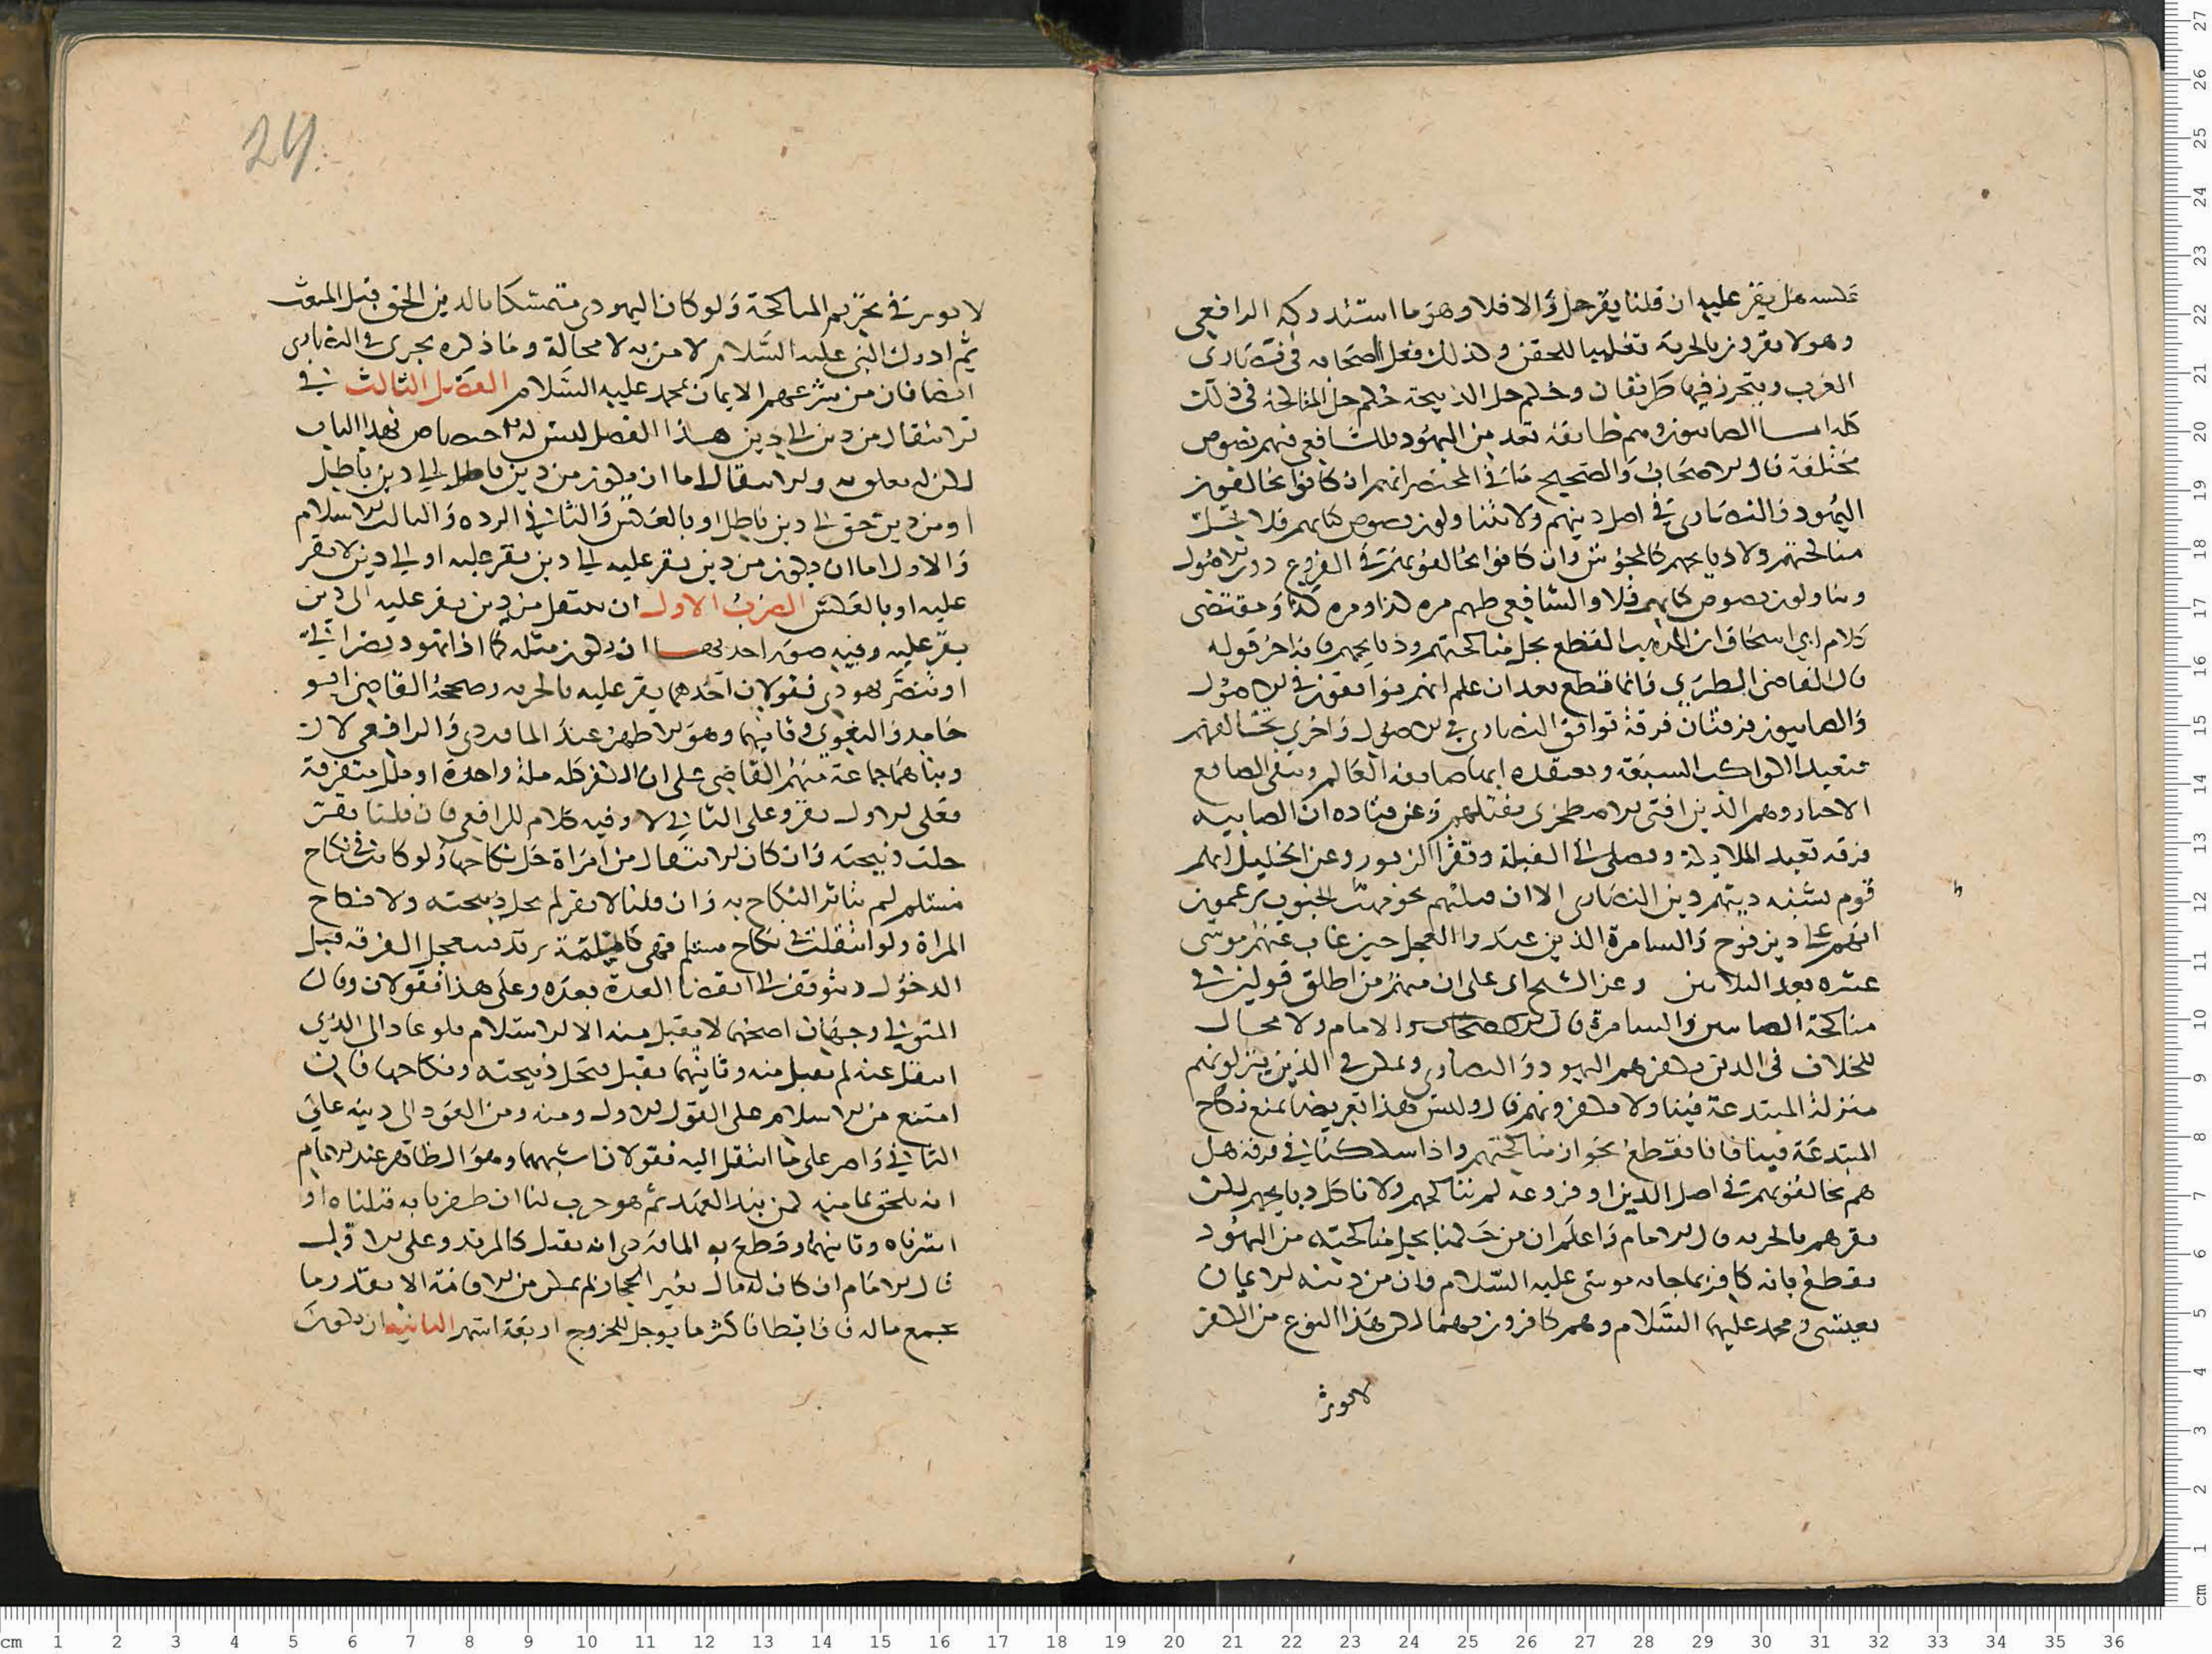 عكسه هل يقر عليه ان قلنا يقر حل والا فلا وهو ما استدركه الرافعي
وهولا يقرون بالجزية تغليبا للحقن وكذلك فعل الصحابه في نصارى
العرب ويتحرر فيها طريقان وحكم حل الذبيحة حكم حل المناكحة في ذلك
كله اما الصابيون وهم طايفة تعد من اليهود وللشافعي فيهم نصوص
مختلفة قال الاصحاب والصحيح ما في المختصر انهم ان كانوا يخالفون
اليهود والنصارى في اصل دينهم ولا يتناولون نصوص كتابهم فلا تحل
مناكحتهم ولا ذبايحهم كالمجوس وان كانوا يخالفونهم في الفروع دون الاصول
ويتاولون نصوص كتابهم فلا والشافعي ظنهم مره كذا ومره كذا ومقتضى
كلام ابي اسحاق المذهب القطع بحل مناكحتهم وذبايحهم فانه اخر قوله
قال القاضي الطبري وانما قطع بعد ان علم انهم يوافقون في الاصول
والصابيون فرقتان فرقة توافق النصارى في الاصول واخرى تخالفهم
فتعبد الكواكب السبعة وتعتقد انها صانعة العالم وتنفي الصانع
الاختار وهم الذين افتى الاصطخري بقتلهم وعن قتاده ان الصابيه
فرقه تعبد الملايكة وتصلي الى القبلة وتقرا الزبور وعن الخليل انهم
قوم يشبه دينهم دين النصارى الا ان قبلتهم نحو مهب الجنوب يزعمون
انهم على دين نوح والسامرة الذين عبدوا العجل حين غاب عنهم موسى
عشره بعد الثلاثين وعن السنجي على ان منهم من اطلق قولين في
مناكحة الصابين والسامرة قال الاصحاب والامام ولا مجال
للخلاف في الذين يكفرهم اليهود والنصارى ويمكن في الذين ينزلونهم
منزلة المبتدعة فينا ولا يكفرونهم قال وليس هذا تعريضا بمنع نكاح
المبتدعة فينا فانا نقطع بجواز مناكحتهم واذا شككنا في فرقه هل
هم يخالفونهم في اصل الدين او فروعه لم نناكحهم ولا ناكل ذبايحهم لكن
نقرهم بالجزيه قال الامام واعلم ان من حكمنا بحل مناكحته من اليهود
نقطع بانه كافر بما جا به موسى عليه السلام فان من دينه الايمان
بعيسى ومحمد عليهما السلام وهم كافرون بهما لكن هذا النوع من الكفر
لا يوثر
24
لا يوثر في تحريم المناكحة ولو كان اليهودي متمسكا بالدين الحق قبل المبعث
ثم ادرك النبي عليه السلام لامن به لا محالة وما ذكره يجري في النصارى
ايضا فان من شرعهم الايمان بمحمد عليه السلام الفصل الثالث في
الانتقال من دين الى دين هذا الفصل ليس له اختصاص بهذا الباب
لكن له تعلق به والانتقال اما ان يكون من دين باطل الى دين باطل
او من دين حق الى دين باطل او بالعكس والثاني الرده والثالث الاسلام
والاول اما ان يكون من دين يقر عليه الى دين يقر عليه او الى دين لا يقر
عليه او بالعكس الضرب الاول ان ينتقل من دين يقر عليه الى دين
يقر عليه وفيه صور احديها ان يكون مثله كما اذا تهود نصراني
او تنصر يهودي فقولان احدهما يقر عليه بالجزيه وصححه القاضي ابو
حامد والبغوي وثانيهما وهو الاظهر عند الماوردي والرافعي لا
وبناهما جماعة منهم القاضي على ان الكفر كله ملة واحدة او ملل متفرقة
فعلى الاول يقر وعلى الثاني لا وفيه كلام للرافعي فان قلنا يقر
حلت ذبيحته وان كان الانتقال من امراة حل نكاحها ولو كانت في نكاح
مسلم لم يتاثر النكاح به وان قلنا لا يقر لم تحل ذبيحته ولا نكاح
المراة ولو انتقلت في نكاح مسلم فهي كالمسلمة ترتد فيتعجل الفرقه قبل
الدخول ويتوقف الى انقضا العدة بعده وعلى هذا فقولان وقال
المتولي وجهان اصحهما لا يقبل منه الا الاسلام فلو عاد الى الذي
انتقل عنه لم يقبل منه وثانيهما يقبل فتحل ذبيحته ونكاحها فان
امتنع من الاسلام على القول الاول ومنه ومن العود الى دينه على
الثاني واصر على ما انتقل اليه فقولان اشبههما وهو الظاهر عند الامام
انه يلحق بمامنه كمن نبذ العهد ثم هو حرب لنا ان ظفرنا به قتلناه او
استرقاه وثانيهما وقطع به الماوردي انه يقتل كالمرتد وعلى الاول
قال الامام ان كان له مال بغير الحجاز لم يمكن من الاقامة الا بقدر ما
يجمع ماله فان ابطا فاكثر ما يوجل للخروج اربعة اشهر الثانية ان يكون